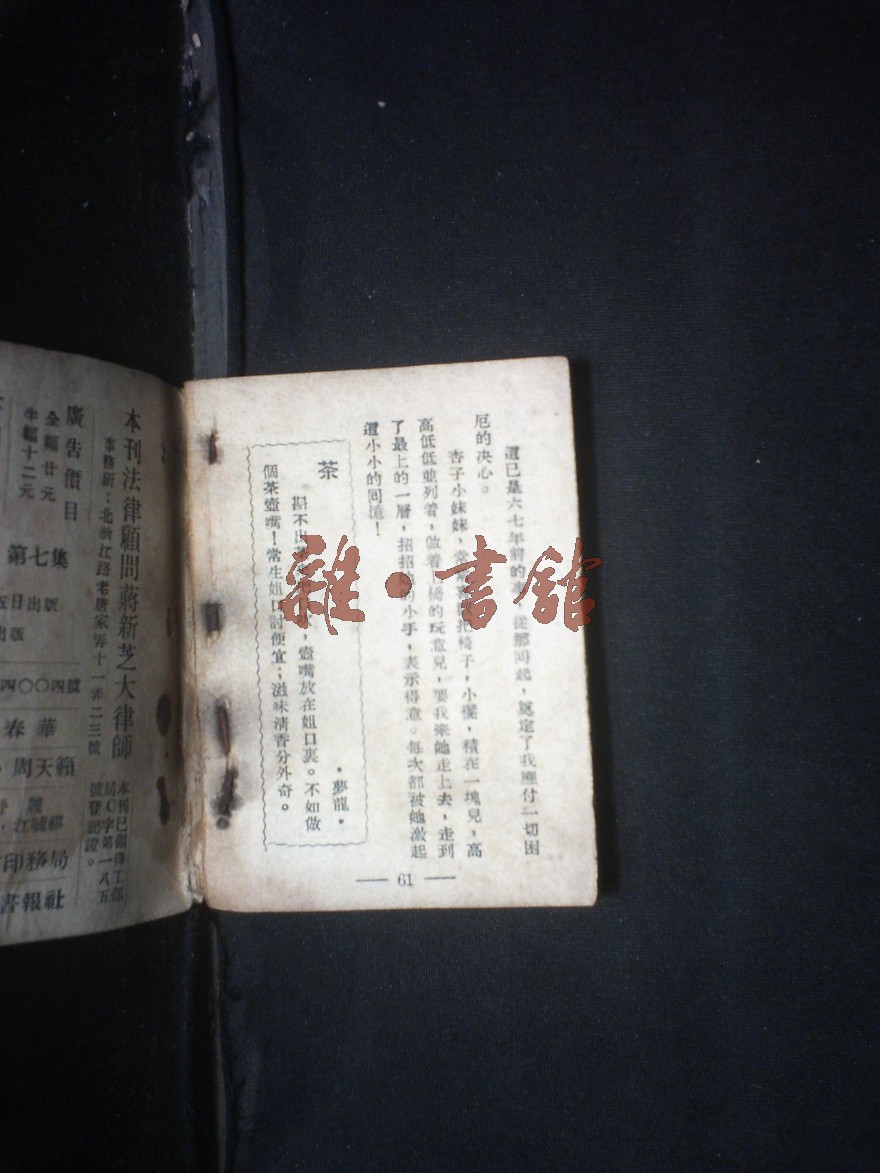 這已是六七年前的
從那回起，奠定了我應付一切困
厄的決心。
杏子小妹妹，
把椅子，小櫈，積在一塊兒，高
高低低並列着，做着
的玩意兒，要我率她走上去，走到
了最上的一層，招招
小手，表示得意。每次都被她激起
這小小的回憶！
茶
·夢龍·
斟不出
壺嘴放在姐口裏。不如做
個茶壺嘴！常生姐口討便宜；滋味清香分外奇。
雜·書館
— 61 —
本刊法律顧問蔣新芝大律師
事務所：北浙江路老唐家弄十一弄二三號
本刊已領得工部
局C字第一八五
號登記證。
廣告價目
全幅廿元
半幅十二元
第七集
五日出版
出版
四〇〇四號
春華
周天籟
印務局
書報社